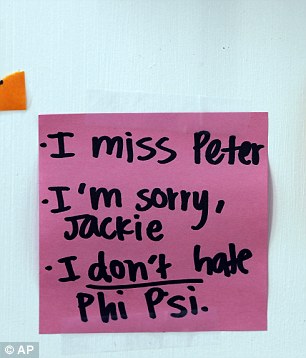 · I miss Peter
· I'm sorry,
Jackie
· I don't hate
Phi Psi.
© AP